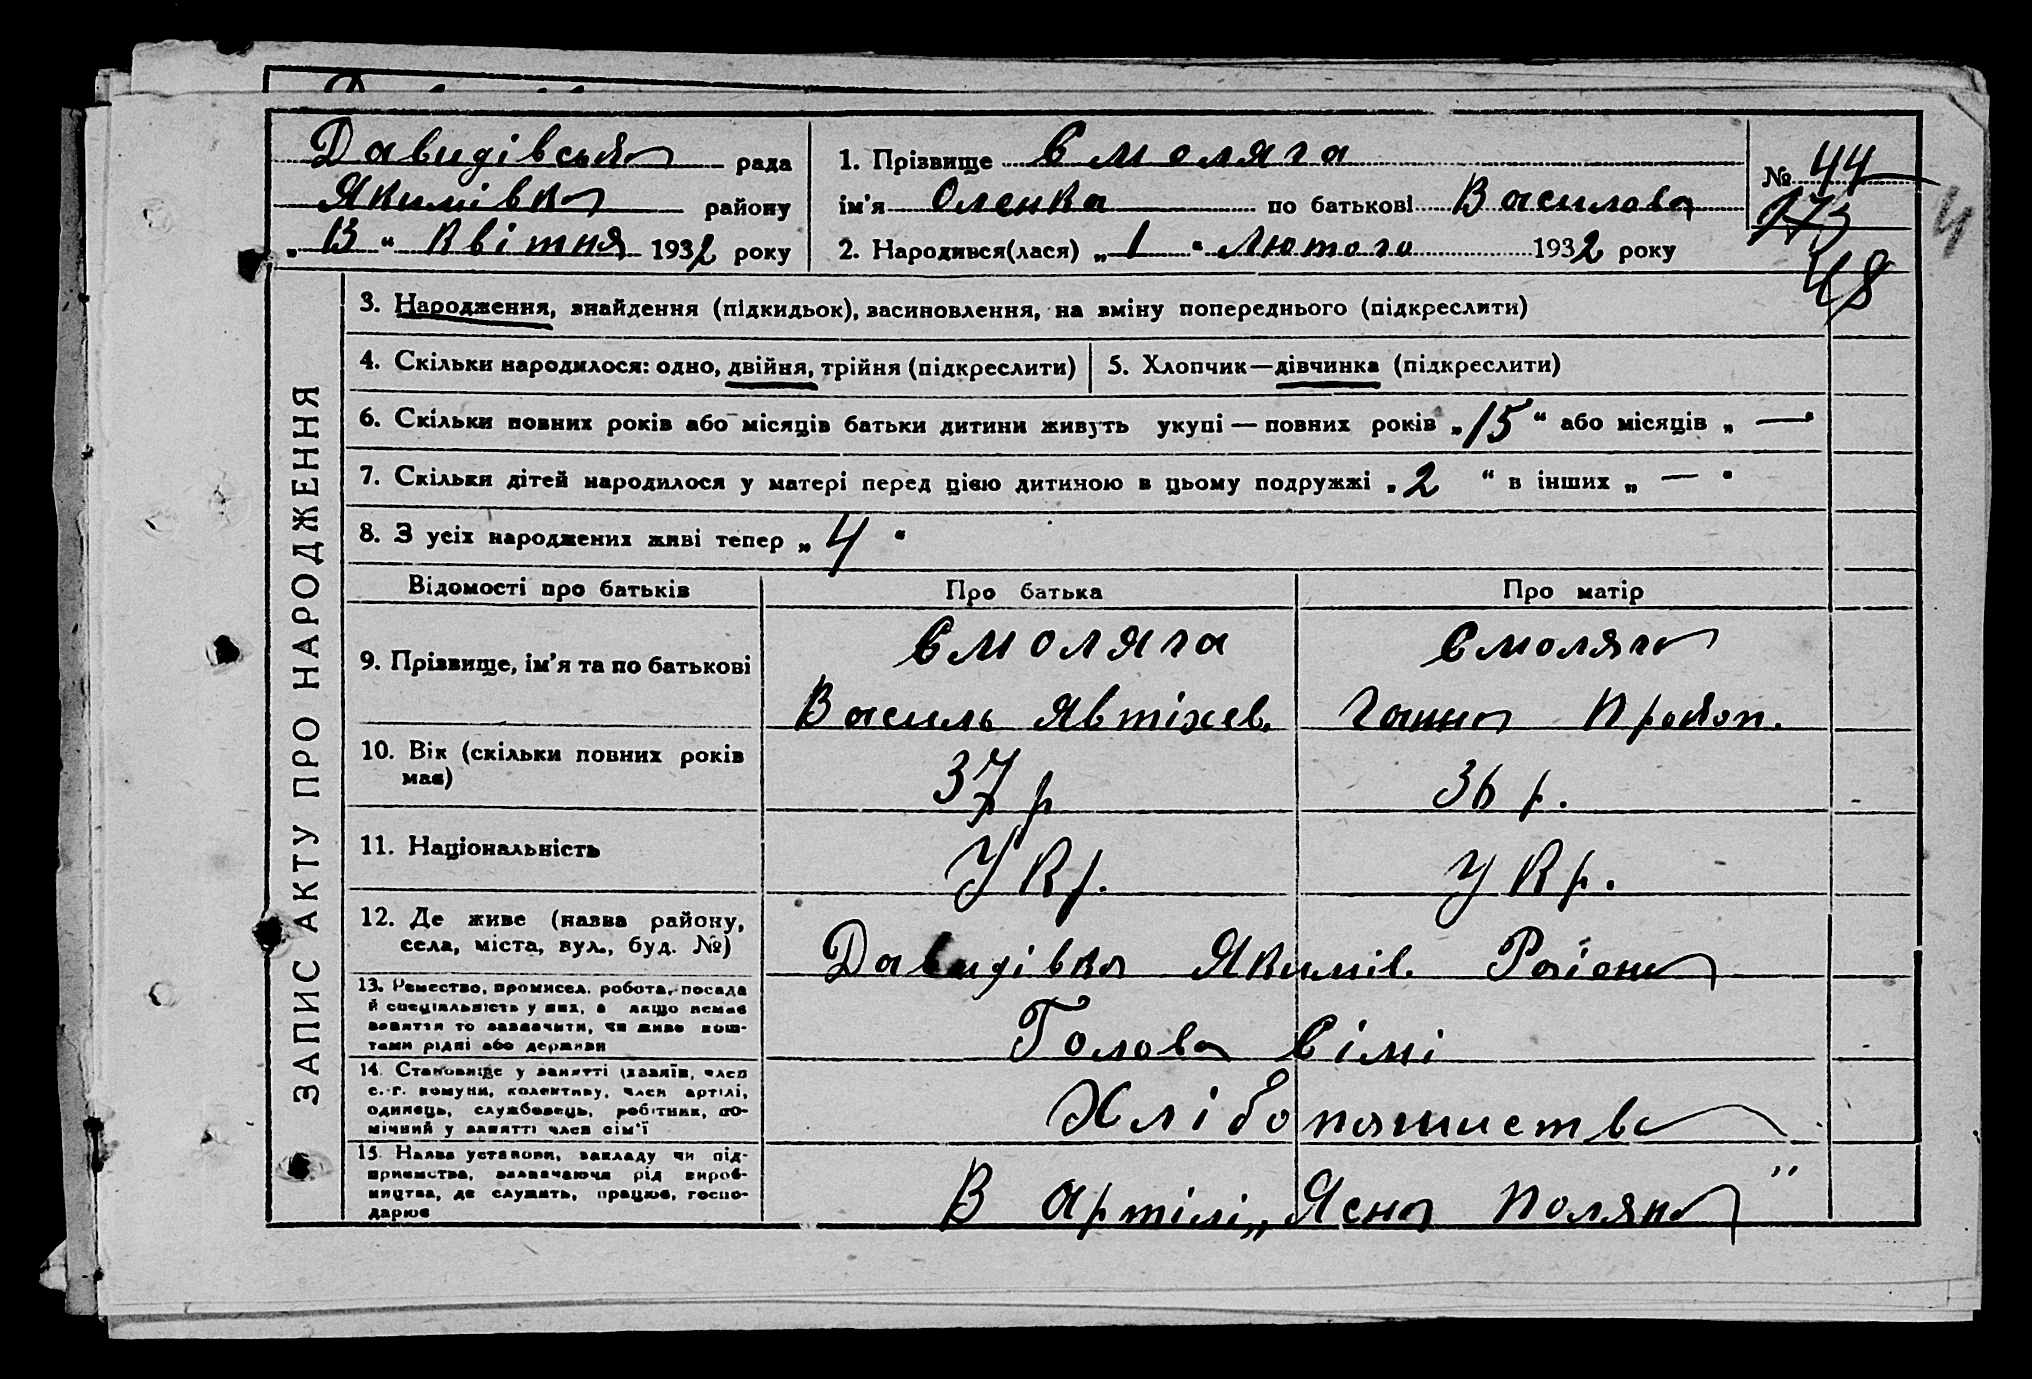 Давидівська рада
Якимівка району
„ 13 “ Квітня 1932 року
1. Прізвище Смоляга
ім'я Оленка по батькові Василова
2. Народився(лася) „ 1 “ Лютого 1932 року
№ 44
48
4
ЗАПИС АКТУ ПРО НАРОДЖЕННЯ
3. Народження, знайдення (підкидьок), засиновлення, на зміну попереднього (підкреслити)
4. Скільки народилося: одно, двійня, трійня (підкреслити) 5. Хлопчик—дівчинка (підкреслити)
6. Скільки повних років або місяців батьки дитини живуть укупі — повних років „ 15 “ або місяців „ —“
7. Скільки дітей народилося у матері перед цією дитиною в цьому подружжі „ 2 “ в інших „ — “
8. З усіх народжених живі тепер „ 4 “
Відомості про батьків Про батька Про матір
9. Прізвище, ім'я та по батькові
Смоляга Смоляга
Василь Явтіхов. Ганна Прокоп.
10. Вік (скільки повних років має)
37 р 36 р.
11. Національність Укр. Укр.
12. Де живе (назва району,
села, міста, вул., буд. №)
Давидівка Якимів. Району
13. Ремество, промисел, робота, посада
й спеціяльність у них, а якщо немає
заняття то зазначити, чи живе кош-
тами рідні або держави
Голова Сімї
14. Становище у занятті (хазяїн, член
с.-г. комуни, колективу, член артілі,
одинець, службовець, робітник, по-
мічний у занятті член сім'ї
Хлібопашиство
15. Назва установи, закладу чи під-
приємства, зазначаючи рід вироб-
ництва, де служить, працює, госпо-
дарює
В Артілі „Ясна Поляна"